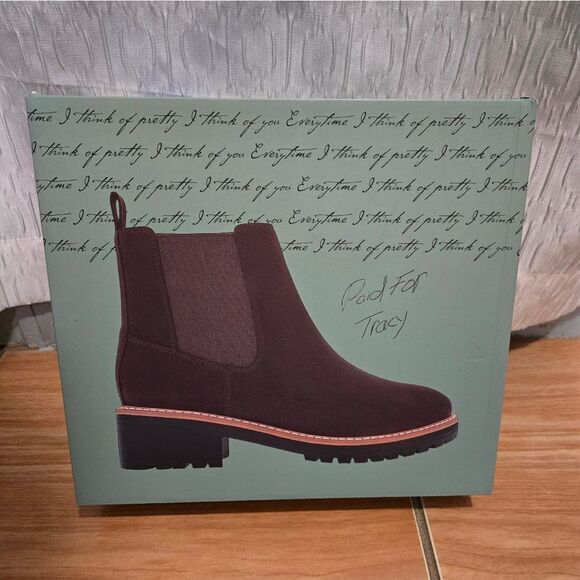 time I think of pretty I think of you Everytime I think of pretty I think of
I think of pretty I think of you Everytime I think of pretty I think of
time I think of pretty I think of you Everytime I think of pretty I think of
time I think of pretty I think of you Everytime I think of pretty I think of
I think of p time I think of pretty I think of
Paid For
Tracy